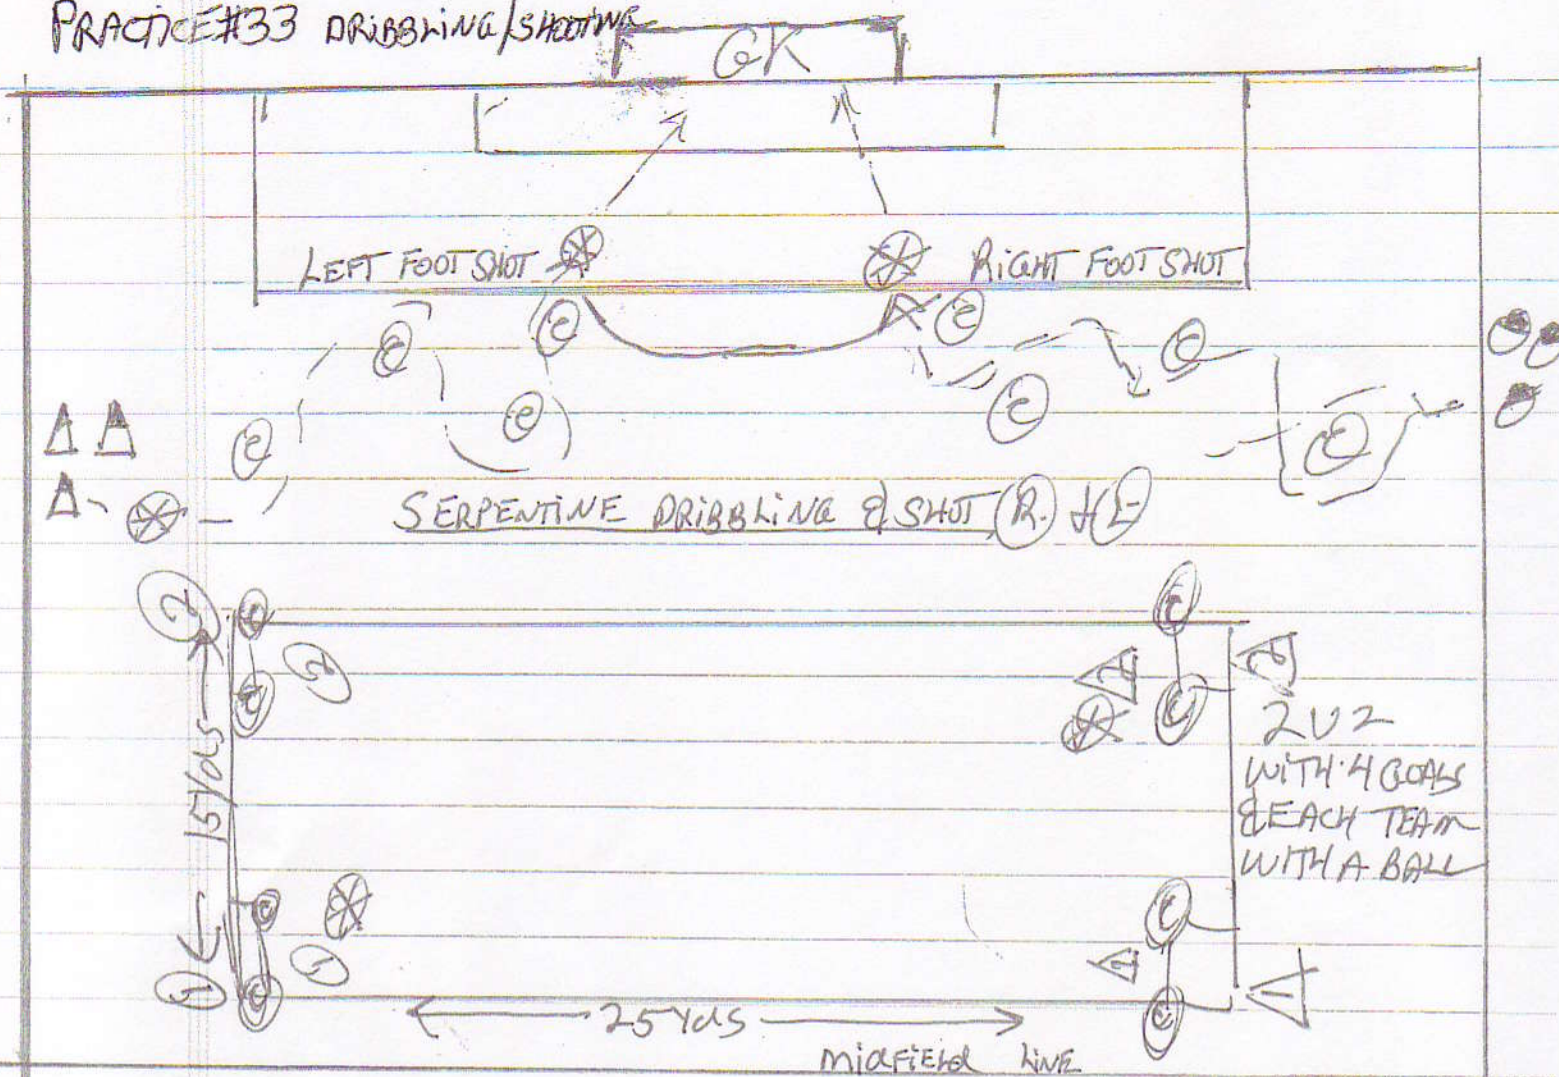 PRACTICE #33 DRIBBLING/SHOOTING
GK
LEFT FOOT SHOT
RIGHT FOOT SHOT
C
C
C
C
C
C
C
C
SERPENTINE DRIBBLING & SHOT (R) + (L)
2
C
C
2
C
2
C
2
2V2
WITH 4 GOALS
& EACH TEAM
WITH A BALL
15 Yds
C
1
C
1
C
1
C
1
25 Yds
midfield LINE